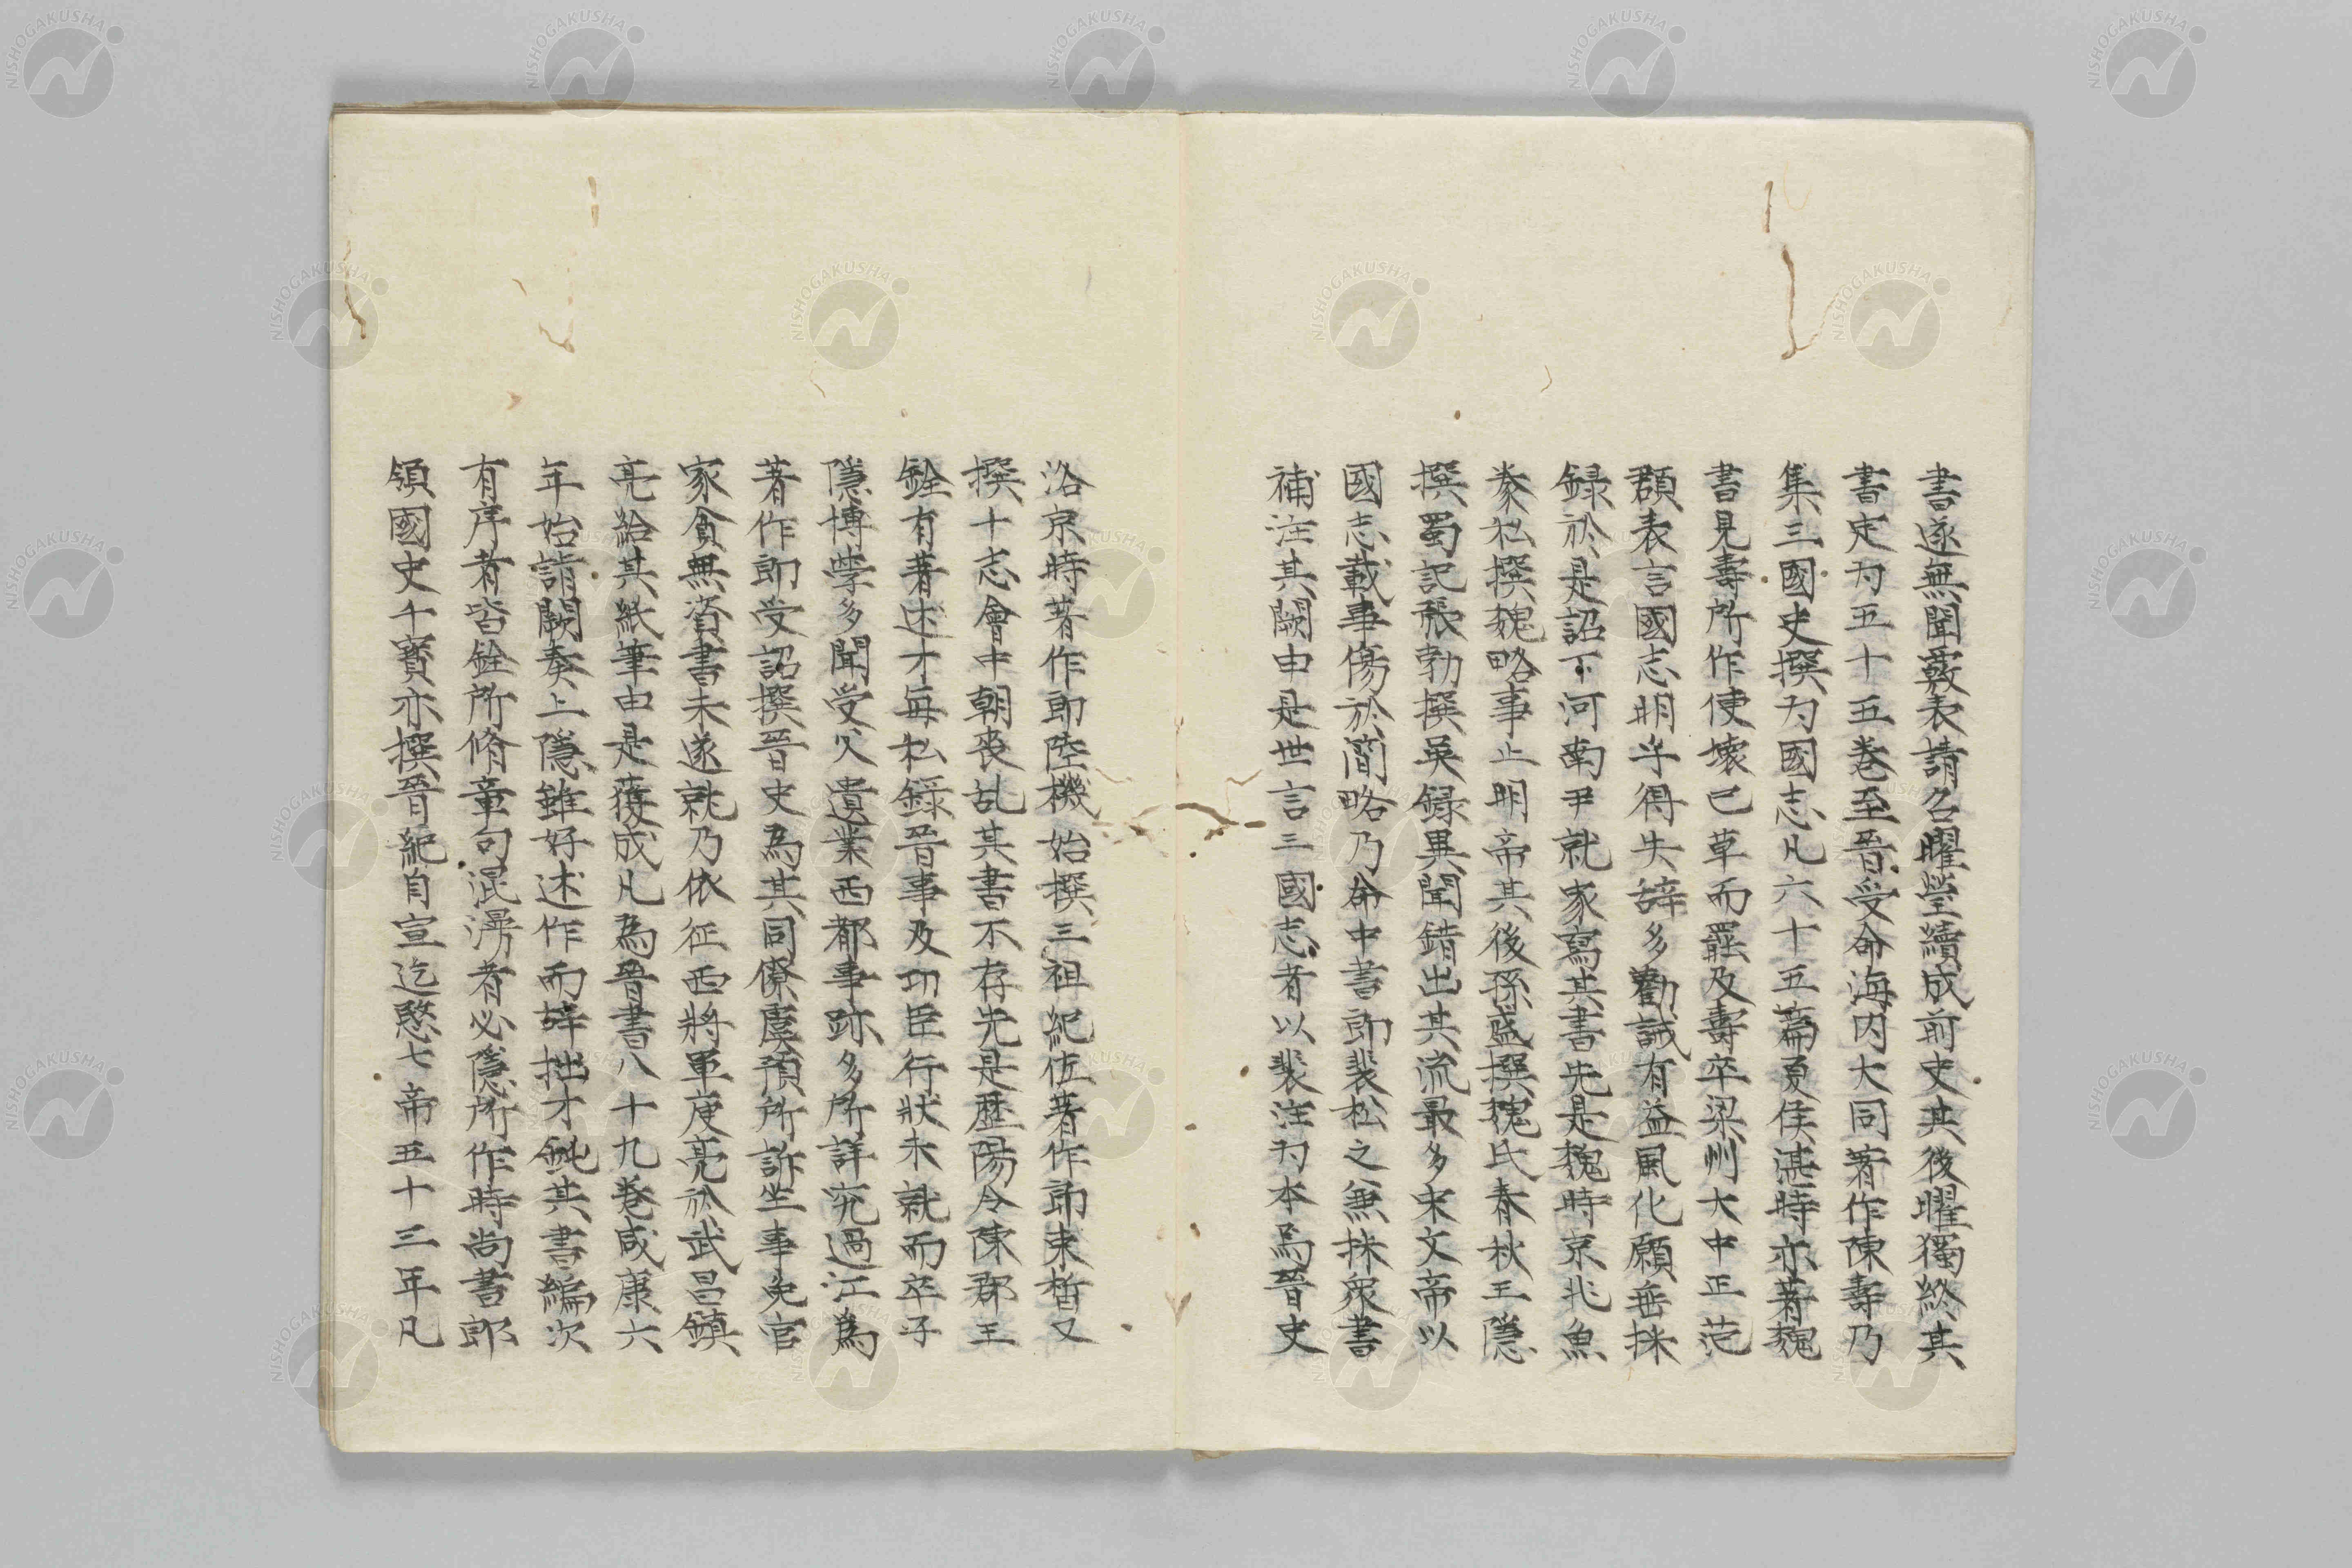 書遂無聞覈表請召曜瑩續成前史其後曜獨終其
書定為五十五巻至晉受命海内大同著作陳壽乃
集三國史撰為國志凡六十五篇夏侯湛時亦著魏
書見壽所作使壊己草而罷及壽卒梁州大中正范
頵表言國志明乎得失辞多勸誡有益風化願垂採
録於是詔下河南尹就家寫其書先是魏時京兆魚
豢私撰魏略事止明帝其後孫盛撰魏氏春秋王隠
撰蜀記張勃撰吳録異聞錯出其流最多宋文帝以
國志載事傷於簡略乃命中書郎裴松之兼採衆書
補注其闕由是世言三國志者以裴注為本焉晉史
洛京時著作郎陸機始撰三祖紀佐著作郎束晳又
撰十志會中朝喪乱其書不存先是歴陽令陳郡王
銓有著述才毎私録晉事及功臣行状未就而卒子
隱博學多聞受父遺業西都事跡多所詳究過江為
著作郎受詔撰晉史為其同僚虞預所訴坐事免官
家貧無資書未遂就乃依征西將軍庾亮於武昌鎮
亮給其紙筆由是獲成凡為晉書八十九巻咸康六
年始詣闕奏上隱雖好述作而辞拙才鈍其書編次
有序者皆銓所脩章句混漫者必隱所作時尚書郎
領國史干寳亦撰晉紀自宣迄愍七帝五十三年凡
NISHOGAKUSHA